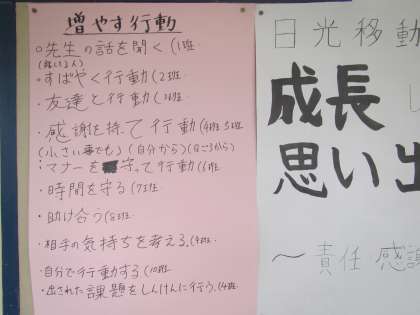 増やす行動
○先生の話を聞く(1班
(話し人)
・すばやく行動(2班
・友達と行動(3班
・感謝を持って行動(4班5班
(小さい事でも)(自分から)(日ごろから)
・マナーを守って行動(6班
・時間を守る(7班
・助け合う(8班
・相手の気持ちを考える.(9班
・自分で行動する.(10班
・出された課題をしんけんに行う.(4班
日光移動
成長し
思い出
〜責任 感謝